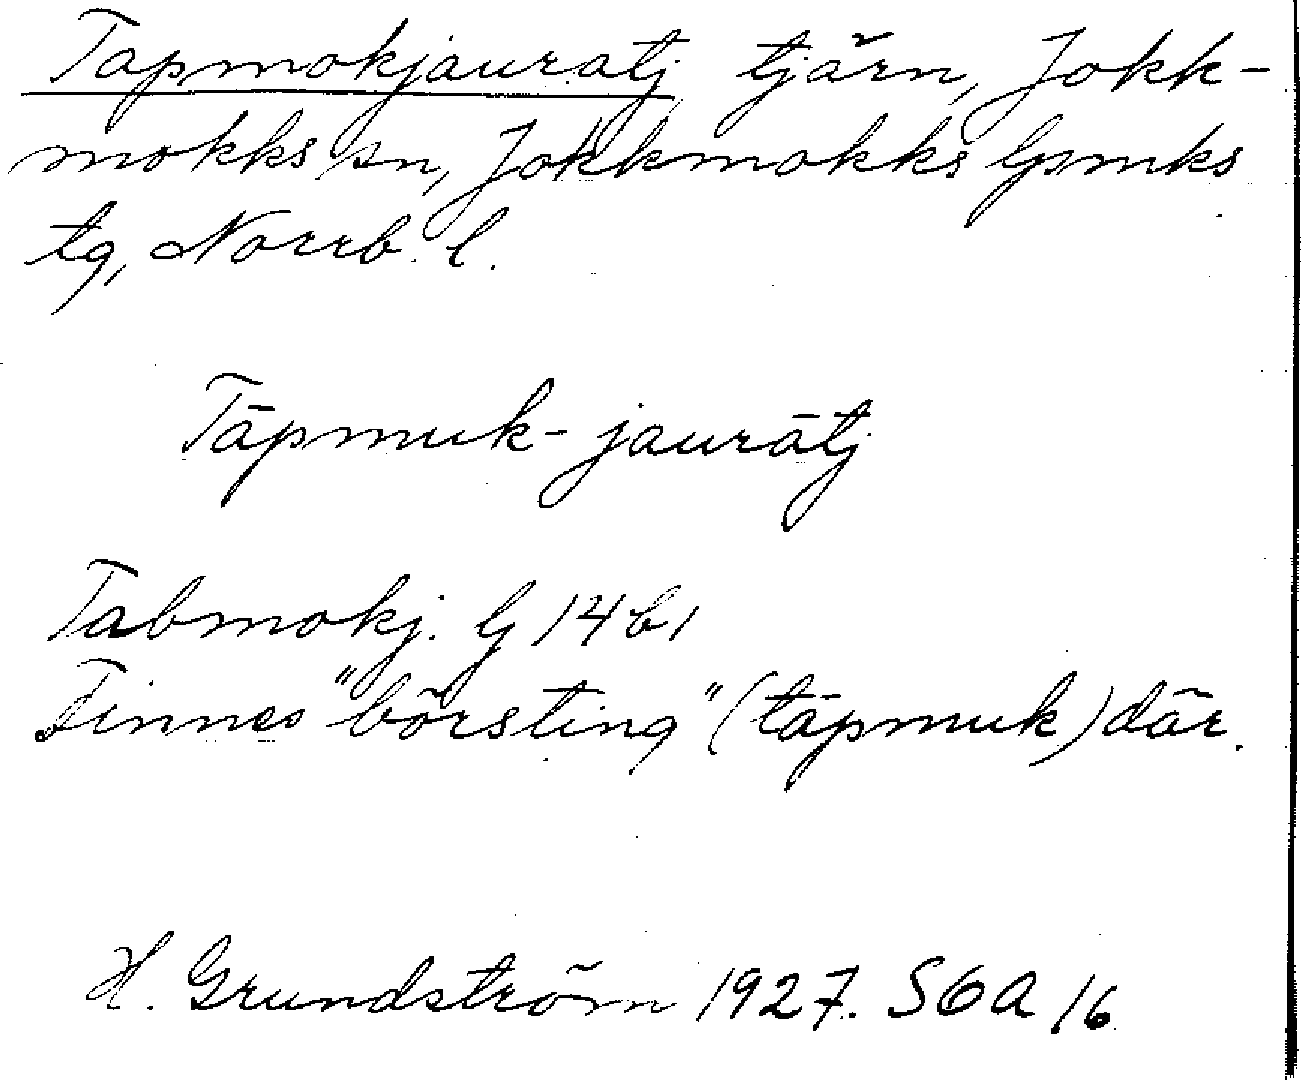 Tapmokjauratj tjärn, Jokk-
mokks sn, Jokkmokks lpmks
tg, Norrb. l.
Tāpmuk-jaurātj
Tabmokj. G 14 b1
Finnes "börsting" (tāpmuk) där.
H. Grundström 1927. SOA 16